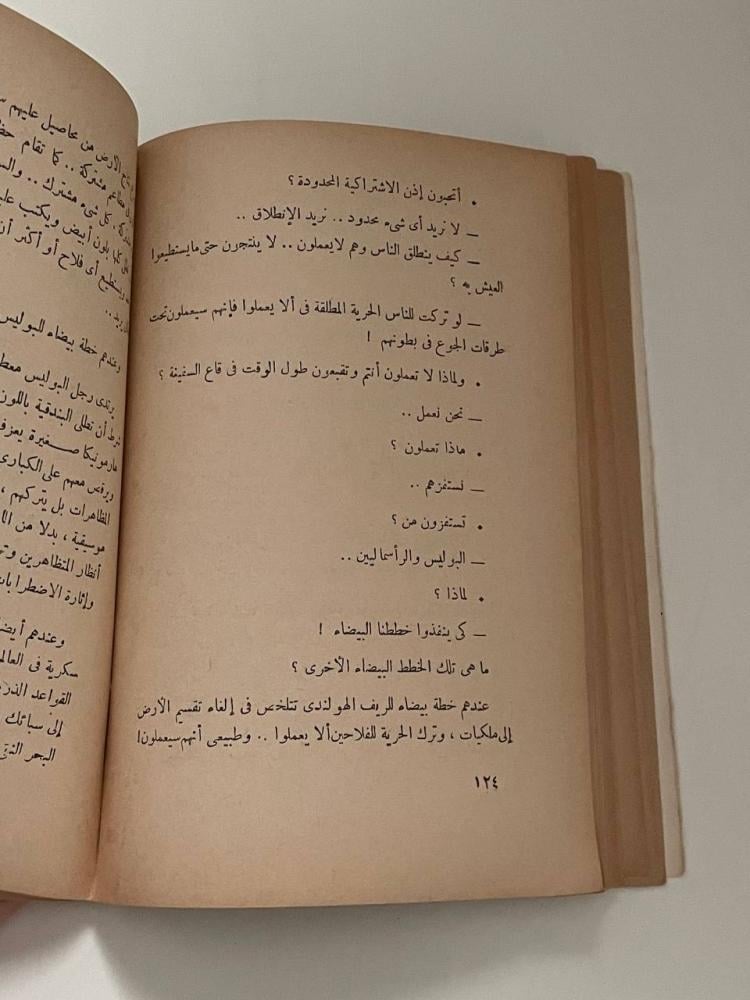 • أتحبون إذن الاشتراكية المحدودة ؟
— لا نريد أى شىء محدود .. نريد الإنطلاق ..
— كيف ينطلق الناس وهم لايعملون .. لا ينتجون حتى مايستطيعوا
العيش به ؟
— لو تركت للناس الحرية المطلقة فى ألا يعملوا فإنهم سيعملون تحت
طرقات الجوع فى بطونهم !
• ولماذا لا تعملون أنتم وتقبعون طول الوقت فى قاع السفينة ؟
— نحن نعمل ..
• ماذا تعملون ؟
— نستفزهم ..
• تستفزون من ؟
— البوليس والرأسماليين ..
• لماذا ؟
— كى ينفذوا خططنا البيضاء !
ما هى تلك الخطط البيضاء الأخرى ؟
عندهم خطة بيضاء للريف الهولندى تتلخص فى إلغاء تقسيم الأرض
إلى ملكيات ، وترك الحرية للفلاحين ألا يعملوا .. وطبيعى أنهم سيعملون !
١٢٤
الأرض من محاصيل عليهم
مشتركة .. كما تقام
كل شىء مشترك ..
بلون أبيض ويكتب
أى فلاح أو أكثر أن
وعندهم خطة بيضاء للبوليس
يرتدى رجل البوليس
شرط أن تطلى البندقية باللون
هارمونيكا صغيرة يعزف
ويرقص معهم على الكبارى
المظاهرات بل يتركهم ،
موسيقية ، بدلا من
أنظار المتظاهرين
وإثارة الاضطرابات
وعندهم
سكرية فى
القواعد
إلى سبائك
البحر